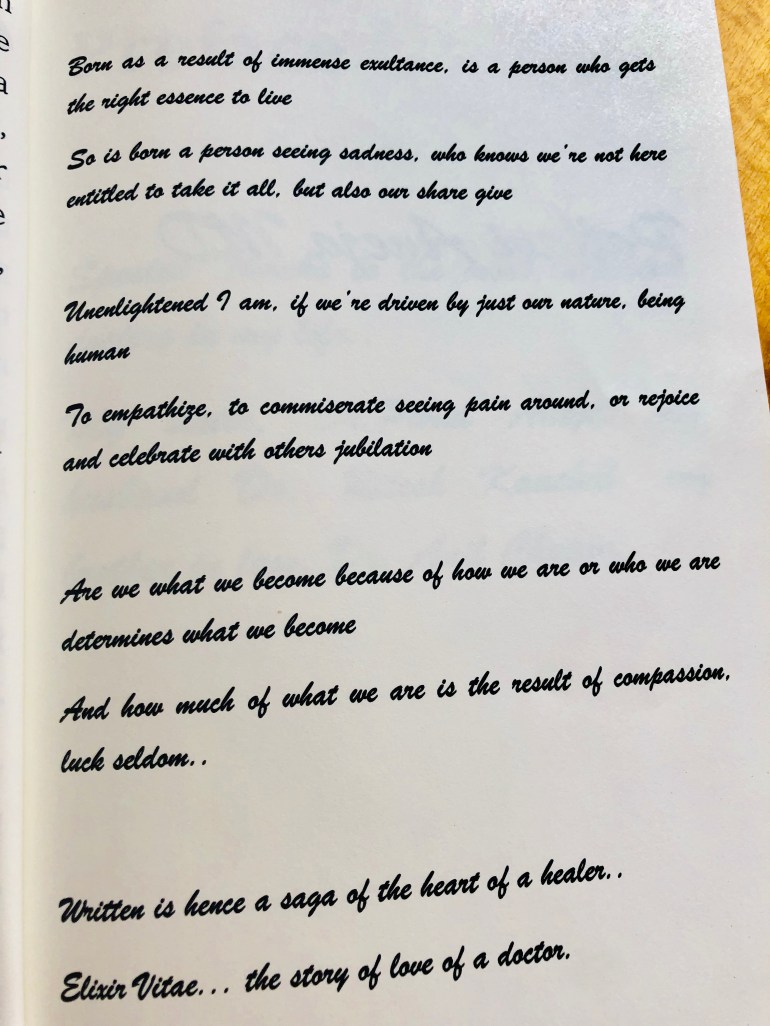 Born as a result of immense exultance, is a person who gets
the right essence to live
So is born a person seeing sadness, who knows we're not here
entitled to take it all, but also our share give
Unenlightened I am, if we're driven by just our nature, being
human
To empathize, to commiserate seeing pain around, or rejoice
and celebrate with others jubilation
Are we what we become because of how we are or who we are
determines what we become
And how much of what we are is the result of compassion,
luck seldom..
Written is hence a saga of the heart of a healer..
Elixir Vitae... the story of love of a doctor.